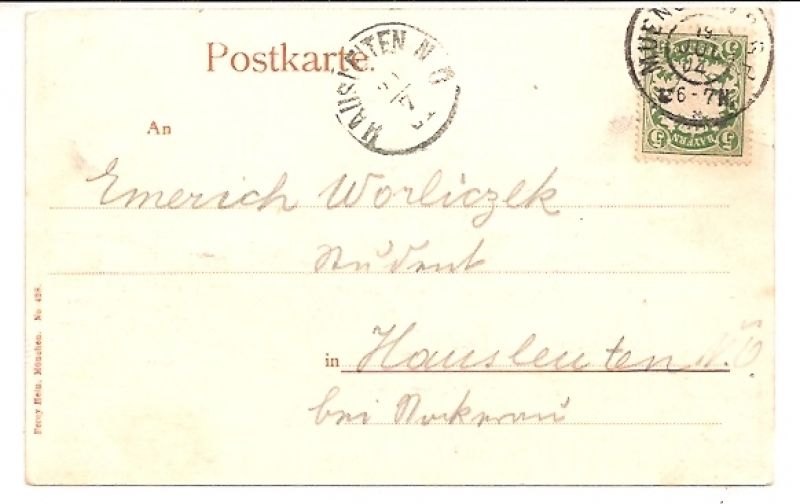 Postkarte.
HAUSLEUTEN N.Ö
MUEN
19
JUL
04
6-7N.
5 5
BAYERN
5 5
An
Emerich Worliczek
Student
in Hausleuten N.Ö
bei Stockerau
Percy Hein, München. No 428.